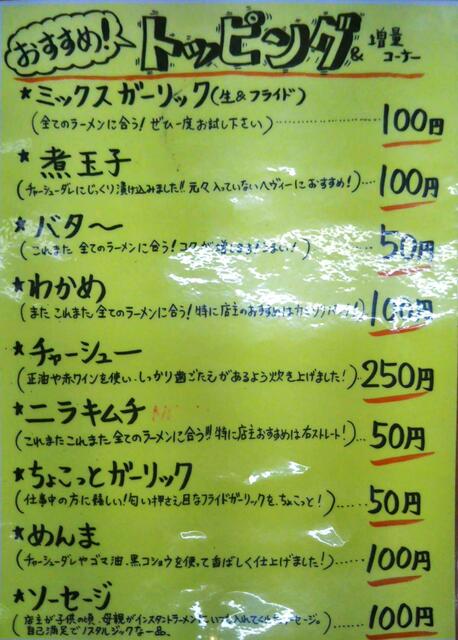 おすすめ! トッピング & 増量コーナー
★ミックスガーリック(生&フライド)
(全てのラーメンに合う!ぜひ一度お試し下さい)…………100円
★煮玉子
(チャーシューダレにじっくり漬け込みました!!元々入っていないヘヴィーにおすすめ!)…100円
★バター
(これまた全てのラーメンに合う!コクが増します!うまい!) 50円
★わかめ
(またこれまた全てのラーメンに合う!特に店主のおすすめは 100円
★チャーシュー
(正油や赤ワインを使い、しっかり歯ごたえがあるよう炊き上げました!)…250円
★ニラキムチ
(これまたこれまた全てのラーメンに合う!!!特に店主おすすめは右ストレート!)…50円
★ちょこっとガーリック
(仕事中の方に嬉しい!匂い押さえ目なフライドガーリックを、ちょこっと!)……50円
★めんま
(チャーシューダレやゴマ油、黒コショウを使って香ばしく仕上げました!)……100円
★ソーセージ
(店主が子供の頃、母親がインスタントラーメンに入れてくれたソーセージ。
自己満足でノスタルジックな一品。)……100円